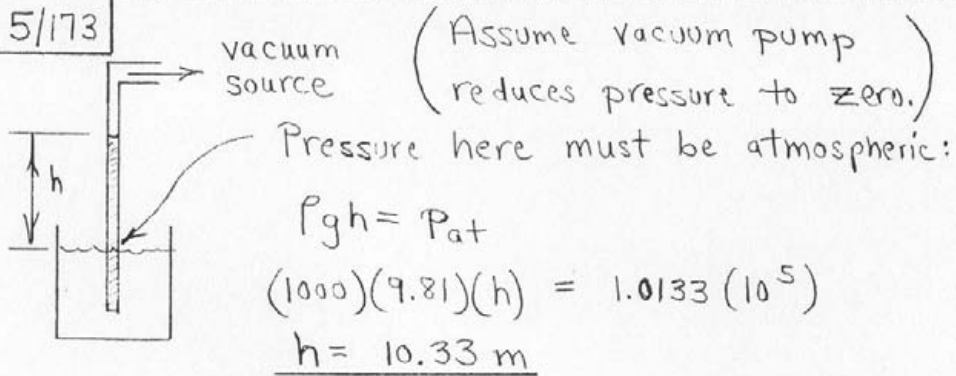 5/173
vacuum
source
(Assume vacuum pump
reduces pressure to zero.)
Pressure here must be atmospheric:
h
ρgh = Pat
(1000)(9.81)(h) = 1.0133 (10^5)
h = 10.33 m